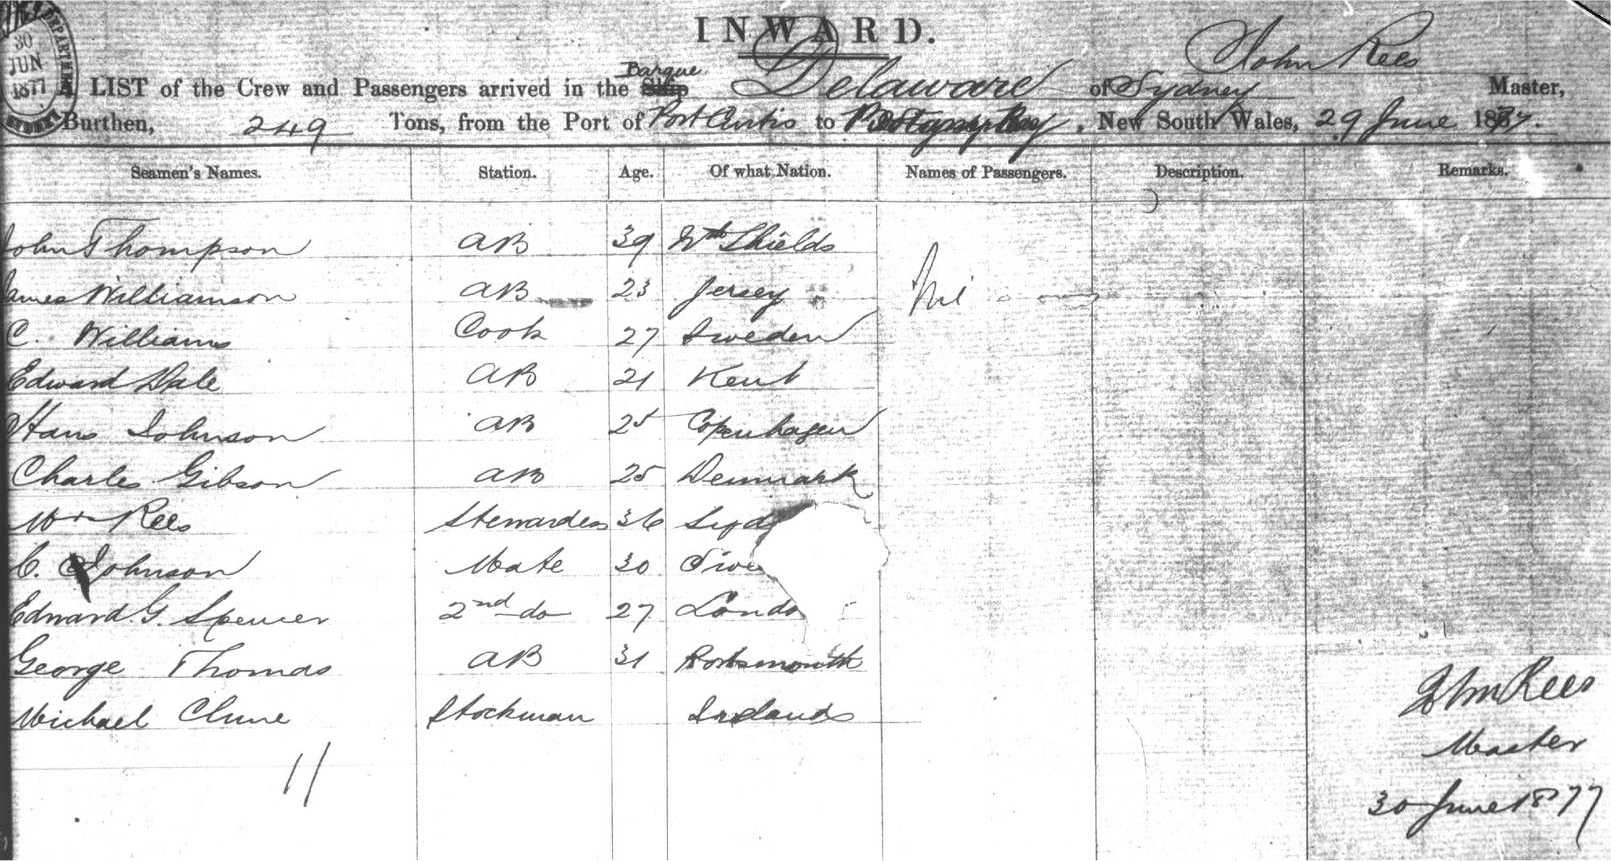 DEPARTMENT
30
JUN
1877
SYDNEY
INWARD.
John Rees
Barque
A LIST of the Crew and Passengers arrived in the Ship Delaware of Sydney Master,
Burthen, 249 Tons, from the Port of Port Curtis to , New South Wales, 29 June 1877.
Seamen's Names. Station. Age. Of what Nation. Names of Passengers. Description. Remarks.
John Thompson AB 39 Nth Shields
James Williamson AB 23 Jersey Nil
C. Williams Cook 27 Sweden
Edward Dale AB 21 Kent
Hans Johnson AB 25 Copenhagen
Charles Gibson AB 25 Denmark
Rees Stewardess 36 Syd
C. Johnson Mate 30 Swe
Edward G. Spencer 2nd do 27 Londo
George Thomas AB 31 Portsmouth
Michael Clune Stockman Ireland
11
John Rees
Master
30 June 1877